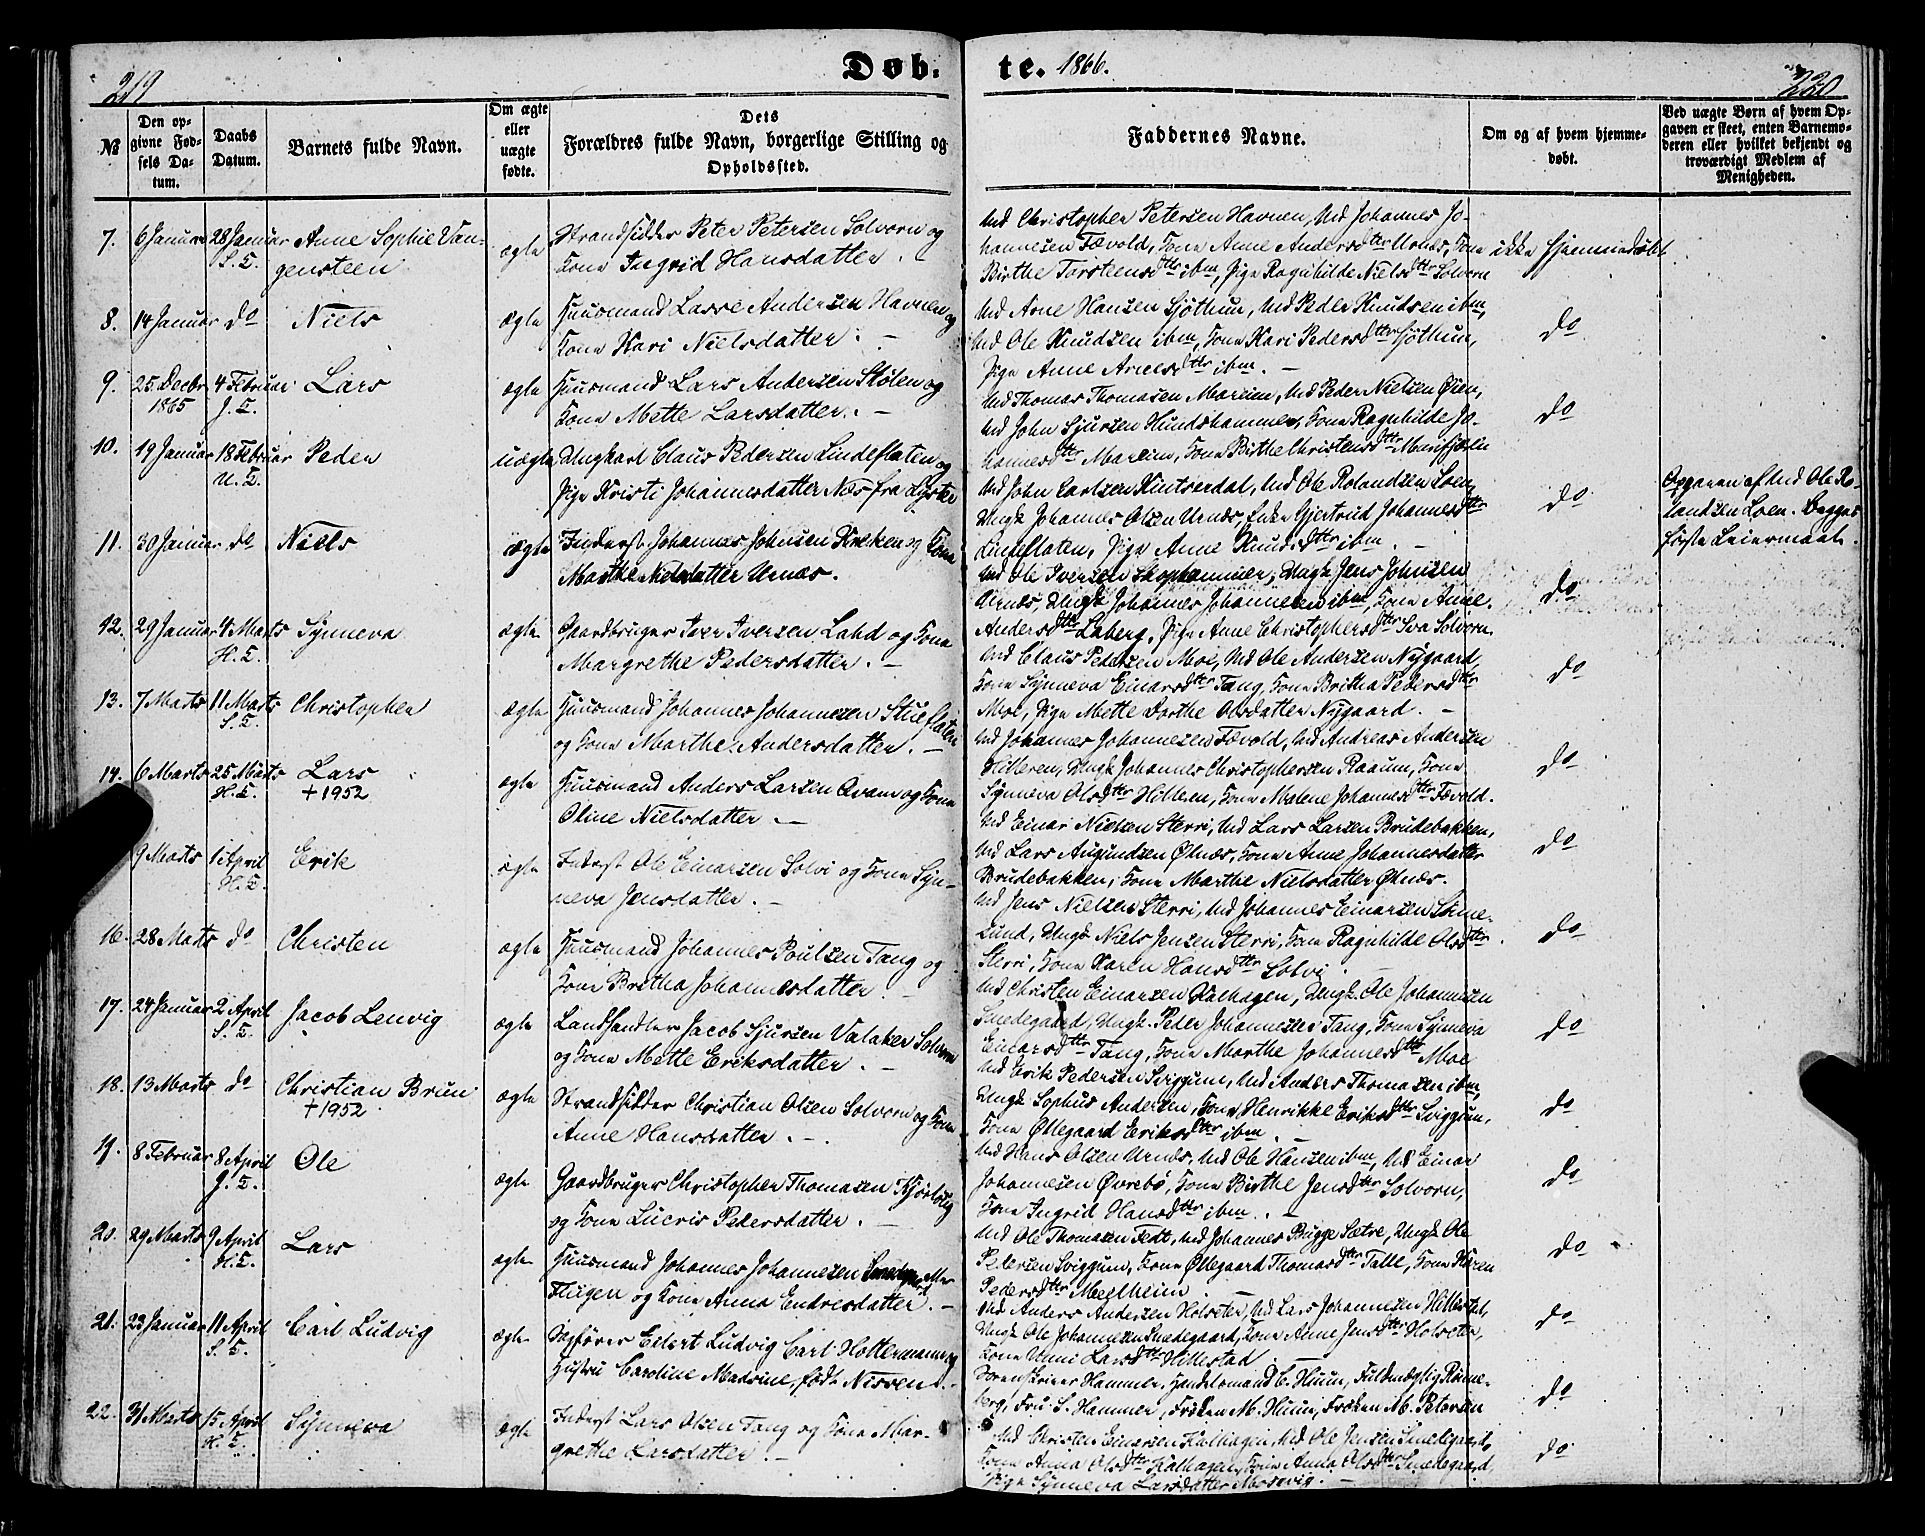 219
Døb-
te. 1866.
220
№
Den opgivne Fødsels Datum.
Daabs Datum.
Barnets fulde Navn.
Om ægte eller uægte fødte.
Dets Forældres fulde Navn, borgerlige Stilling og Opholdssted.
Faddernes Navne.
Om og af hvem hjemmedøbt.
Ved uægte Børn af hvem Opgaven er skeet, enten Barnemoderen eller hvilket bekjendt og troværdigt Medlem af Menigheden.
7. 6 Januar 28 Januar Anne Sophie Van-
S. K. gensteen
ægte Strandsidder Peter Petersen Solvorn og
Kone Ingrid Hansdatter. -
Md Christopher Petersen Havnen, Md Johannes Jo-
hannesen Fævold, Kone Anne Andersdttr Urnes, Kone
Birthe Torsteensdttr ibm, Pige Ragnhilde Nielsdttr Solvorn
ikke hjemmedøbt
8. 14 Januar do Niels
ægte Huusmand Lasse Andersen Havnen og
Kone Kari Nielsdatter. -
Md Arne Hansen Sjøthun, Md Peder Knudsen ibm,
Md Ole Knudsen ibm, Kone Kari Pedersdttr Sjøthun,
Pige Anne Arnesdttr ibm. -
do
9. 25 Decbr 4 Februar Lars
1865 J. K.
ægte Huusmand Lars Andersen Stølen og
Kone Mette Larsdatter. -
Md Thomas Thomasen Mareim, Md Peder Nielsen Øien,
Md John Sjursen Hundshammer, Kone Ragnhilde Jo-
hannesdttr Mareim, Kone Birthe Christensdttr Marifjæren
do
10. 19 Januar 18 Februar Peder
U. K.
uægte Ungkarl Claus Pedersen Lindeflaten og
Pige Kristi Johannesdatter Næs fra Lyster
Md John Carlsen Kintserdal, Md Ole Rolandsen Loen,
Ungk Johannes Olsen Urnes, Enke Gjertrud Johannesdttr
Lindeflaten, Pige Anne Knudsdttr ibm. -
do
Opgaven af Md Ole Ro-
landsen Loen. Begges
første Leiermaal.
11. 30 Januar do Niels
ægte Inderst Johannes Johnsen Kroken og Kone
Marthe Nielsdatter Urnes.
Md Ole Iversen Skophammer, Ungk Jens Johnsen
Urnes, Ungk Johannes Johannesen ibm, Kone Anne
Andersdttr Laberg, Pige Anne Christophersdttr Sva Solvorn
do
12. 29 Januar 4 Marts Synneva
H. K.
ægte Gaardbruger Iver Iversen Lahd og Kone
Margrethe Pedersdatter. -
Md Claus Pedersen Moe, Md Ole Andersen Nygaard,
Kone Synneva Einarsdttr Tang, Kone Britha Pedersdttr
Moe, Pige Mette Dorthe Olsdatter Nygaard. -
do
13. 7 Marts 11 Marts Christopher
S. K.
ægte Huusmand Johannes Johannesen Stueflaten
og Kone Marthe Andersdatter. -
Md Johannes Johannesen Fævold, Md Andreas Andersen
Hilleren, Ungk Johannes Christophersen Raaum, Kone
Synneva Olsdttr Hilleren, Kone Malene Johannesdttr Fævold.
do
14. 6 Marts 25 Marts Lars
H. K. + 1952
ægte Huusmand Anders Larsen Qvam og Kone
Oline Nielsdatter. -
Md Einar Nielsen Sterri, Md Lars Larsen Brudebakken,
Md Lars Augundsen Øknæs, Kone Anne Johannesdatter
Brudebakken, Kone Marthe Nielsdatter Øknæs.
do
9 Marts 1 April Erik
H. K.
ægte Inderst Ole Einarsen Solvi og Kone Syn-
neva Jensdatter. -
Md Jens Nielsen Sterri, Md Johannes Einarsen Stine-
Lund, Ungk Niels Jensen Sterri, Kone Ragnhilde Olsdttr
Sterri, Kone Karen Hansdttr Solvi. -
do
16. 28 Marts do Christen
ægte Huusmand Johannes Poulsen Tang og
Kone Britha Johannesdatter. -
Md Christen Einarsen Kalhagen, Ungk. Ole Johannesen
Smedegaard, Ungk. Peder Johannesen Tang, Kone Synneva
Einarsdttr Tang, Kone Marthe Johannesdttr Moe
do
17. 24 Januar 2 April Jacob Lenvig
S. K.
ægte Landhandler Jacob Sjursen Valaker Solvorn
og Kone Mette Eriksdatter. -
Md Erik Pedersen Sviggum, Md Anders Thomasen ibm,
Ungk Sophus Andersen, Kone Henrikke Eriksdttr Sviggum,
Kone Øllegaard Eriksdttr ibm. -
do
18. 13 Marts do Christian Bruun
+ 1952
ægte Strandsidder Christian Olsen Solvorn og Kone
Anne Hansdatter. -
Md Hans Olsen Urnes, Md Ole Hansen ibm, Md Einar
Johannesen Øvrebø, Kone Birthe Jensdttr Solvorn,
Kone Ingrid Hansdttr ibm. -
do
19. 8 Februar 8 April Ole
J. K.
ægte Gaardbruger Christopher Thomasen Kjørlaug
og Kone Lucris Pedersdatter. -
Md Ole Thomasen Fedt, Md Johannes Bugge Sætre, Ungk Ole
Pedersen Sviggum, Kone Øllegaard Thomasdttr Talle, Kone Karen
Pedersdttr Meelheim. -
do
20. 29 Marts 9 April Lars
H. K.
ægte Huusmand Johannes Johannesen
Flugen og Kone Anna Endresdatter. -
Md Anders Andersen Holseter, Md Lars Johannesen Hillestad,
Ungk Ole Johannesen Smedegaard, Kone Anne Jensdttr Holseter,
Kone Unni Larsdttr Hillestad.
do
21. 22 Januar 11 April Carl Ludvig
S. K.
ægte Sagfører Eilert Ludvig Carl Holtermann og
Hustru Caroline Madsine, født Nissen. -
Sorenskriver Hammer, Handelsmand C. Huun, Fuldmægtig Rønne-
berg, Fru S. Hammer, Frøken M. Huun, Frøken M. Petersen
do
22. 31 Marts 15 April Synneva
H. K.
ægte Inderst Lars Olsen Tang og Kone Mar-
grethe Larsdatter. -
Md Christen Einarsen Kalhagen, Md Ole Jensen Smedegaard,
Kone Anna Olsdttr Kalhagen, Kone Anna Olsdttr Smedegaard,
Pige Synneva Larsdatter Mosevig. -
do